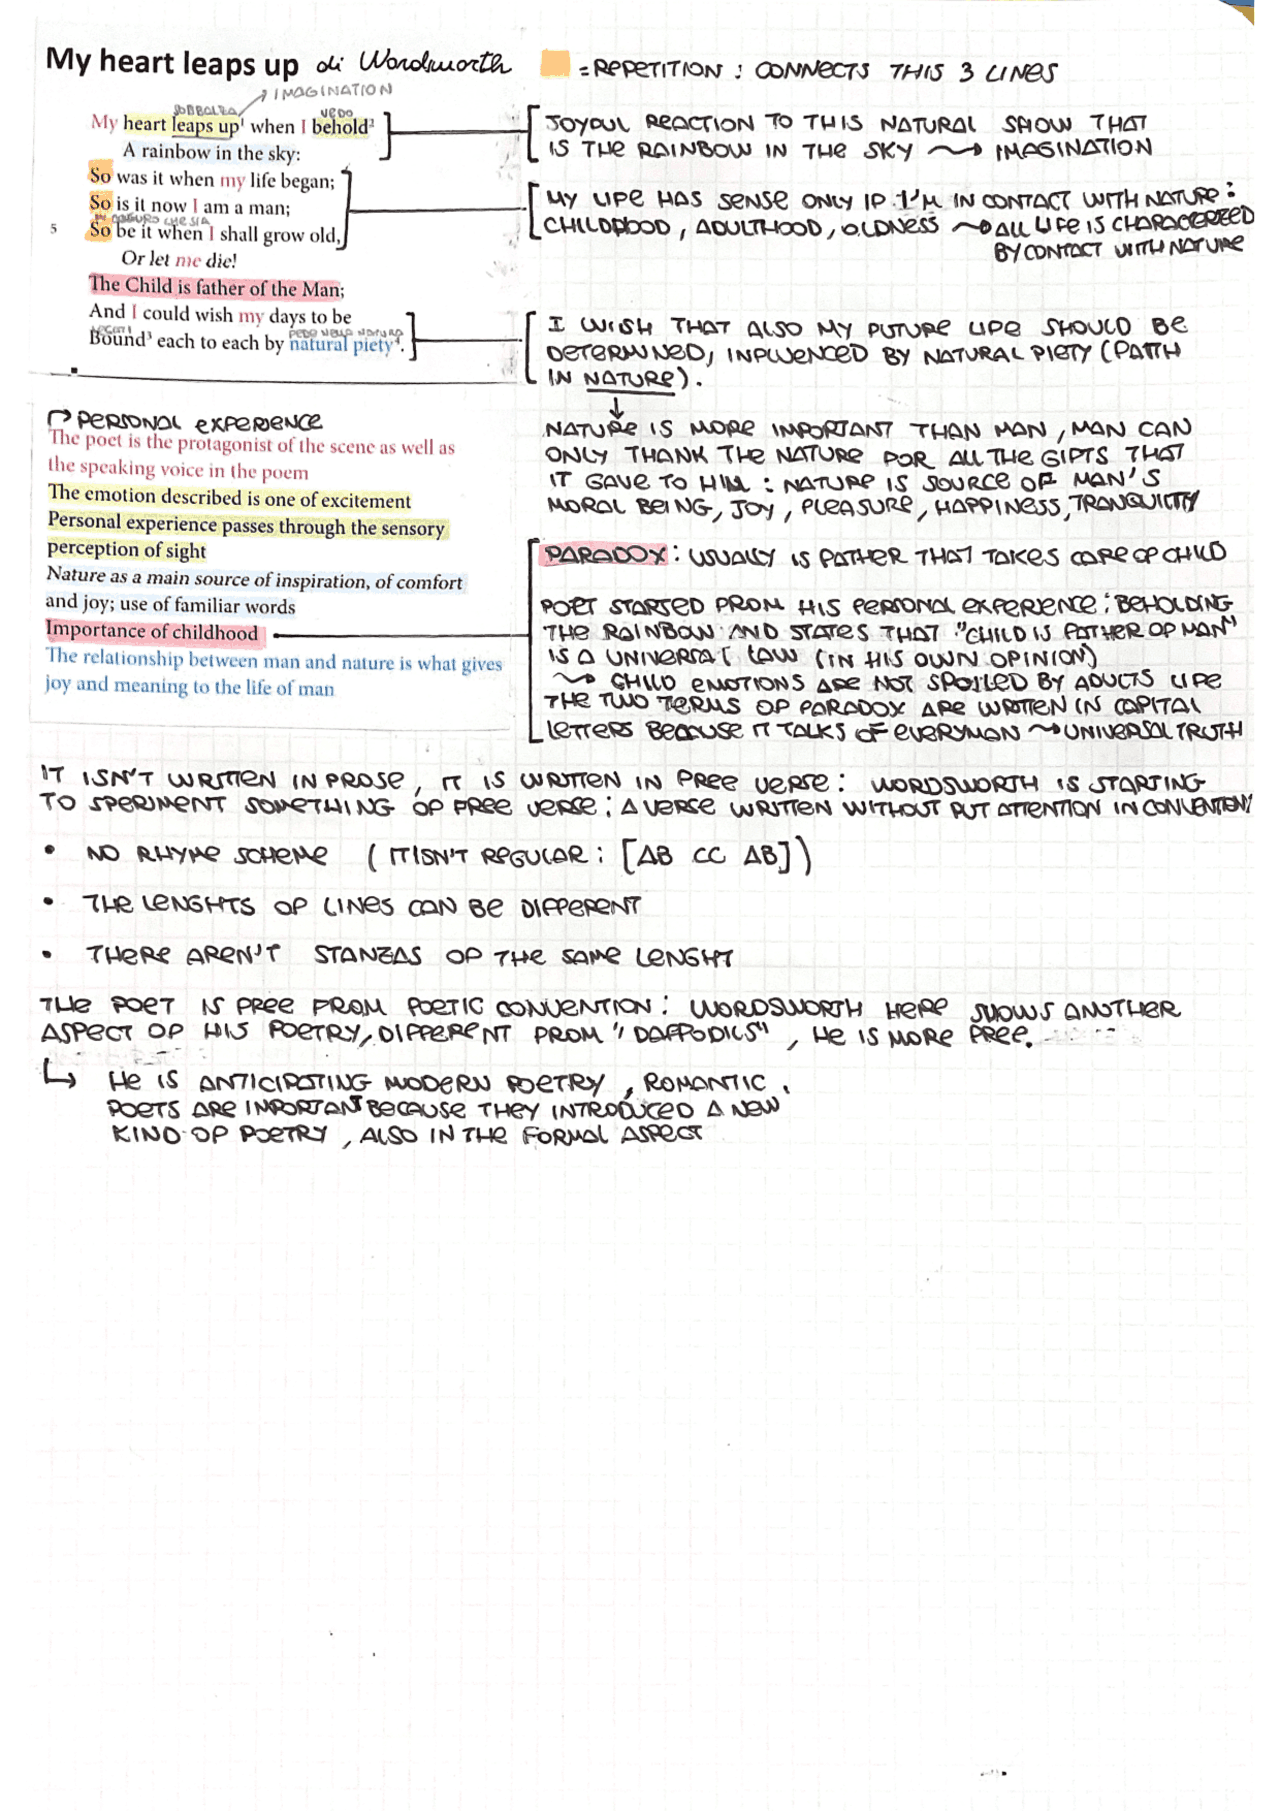 My heart leaps up di Wordsworth
= REPETITION : CONNECTS THIS 3 LINES
IMAGINATION
SOBBALZA VEDO
My heart leaps up¹ when I behold²
A rainbow in the sky:
So was it when my life began;
So is it now I am a man;
CHE SIA
5 So be it when I shall grow old,
Or let me die!
The Child is father of the Man;
And I could wish my days to be
LEGATI FEDE NELLA NATURA
Bound³ each to each by natural piety⁴.
JOYFUL REACTION TO THIS NATURAL SHOW THAT
IS THE RAINBOW IN THE SKY → IMAGINATION
MY LIFE HAS SENSE ONLY IF I'M IN CONTACT WITH NATURE:
CHILDHOOD, ADULTHOOD, OLDNESS → ALL LIFE IS CHARACTERIZED
BY CONTACT WITH NATURE
I WISH THAT ALSO MY FUTURE LIFE SHOULD BE
DETERMINED, INFLUENCED BY NATURAL PIETY (FAITH
IN NATURE).
↓
NATURE IS MORE IMPORTANT THAN MAN, MAN CAN
ONLY THANK THE NATURE FOR ALL THE GIFTS THAT
IT GAVE TO HIM : NATURE IS SOURCE OF MAN'S
MORAL BEING, JOY, PLEASURE, HAPPINESS, TRANQUILITY
PERSONAL EXPERIENCE
The poet is the protagonist of the scene as well as
the speaking voice in the poem
The emotion described is one of excitement
Personal experience passes through the sensory
perception of sight
Nature as a main source of inspiration, of comfort
and joy; use of familiar words
Importance of childhood
The relationship between man and nature is what gives
joy and meaning to the life of man
PARADOX : USUALLY IS FATHER THAT TAKES CARE OF CHILD
POET STARTED FROM HIS PERSONAL EXPERIENCE : BEHOLDING
THE RAINBOW AND STATES THAT "CHILD IS FATHER OF MAN"
IS A UNIVERSAL LAW (IN HIS OWN OPINION)
→ CHILD EMOTIONS ARE NOT SPOILED BY ADULTS LIFE
THE TWO TERMS OF PARADOX ARE WRITTEN IN CAPITAL
LETTERS BECAUSE IT TALKS OF EVERYMAN → UNIVERSAL TRUTH
IT ISN'T WRITTEN IN PROSE, IT IS WRITTEN IN FREE VERSE : WORDSWORTH IS STARTING
TO SPERIMENT SOMETHING OF FREE VERSE : A VERSE WRITTEN WITHOUT PUT ATTENTION IN CONVENTION
• NO RHYME SCHEME (IT ISN'T REGULAR : [AB CC AB])
• THE LENGHTS OF LINES CAN BE DIFFERENT
• THERE AREN'T STANZAS OF THE SAME LENGHT
THE POET IS FREE FROM POETIC CONVENTION : WORDSWORTH HERE SHOWS ANOTHER
ASPECT OF HIS POETRY, DIFFERENT FROM "DAFFODILS", HE IS MORE FREE.
↳ HE IS ANTICIPATING MODERN POETRY, ROMANTIC
POETS ARE IMPORTANT BECAUSE THEY INTRODUCED A NEW
KIND OF POETRY, ALSO IN THE FORMAL ASPECT